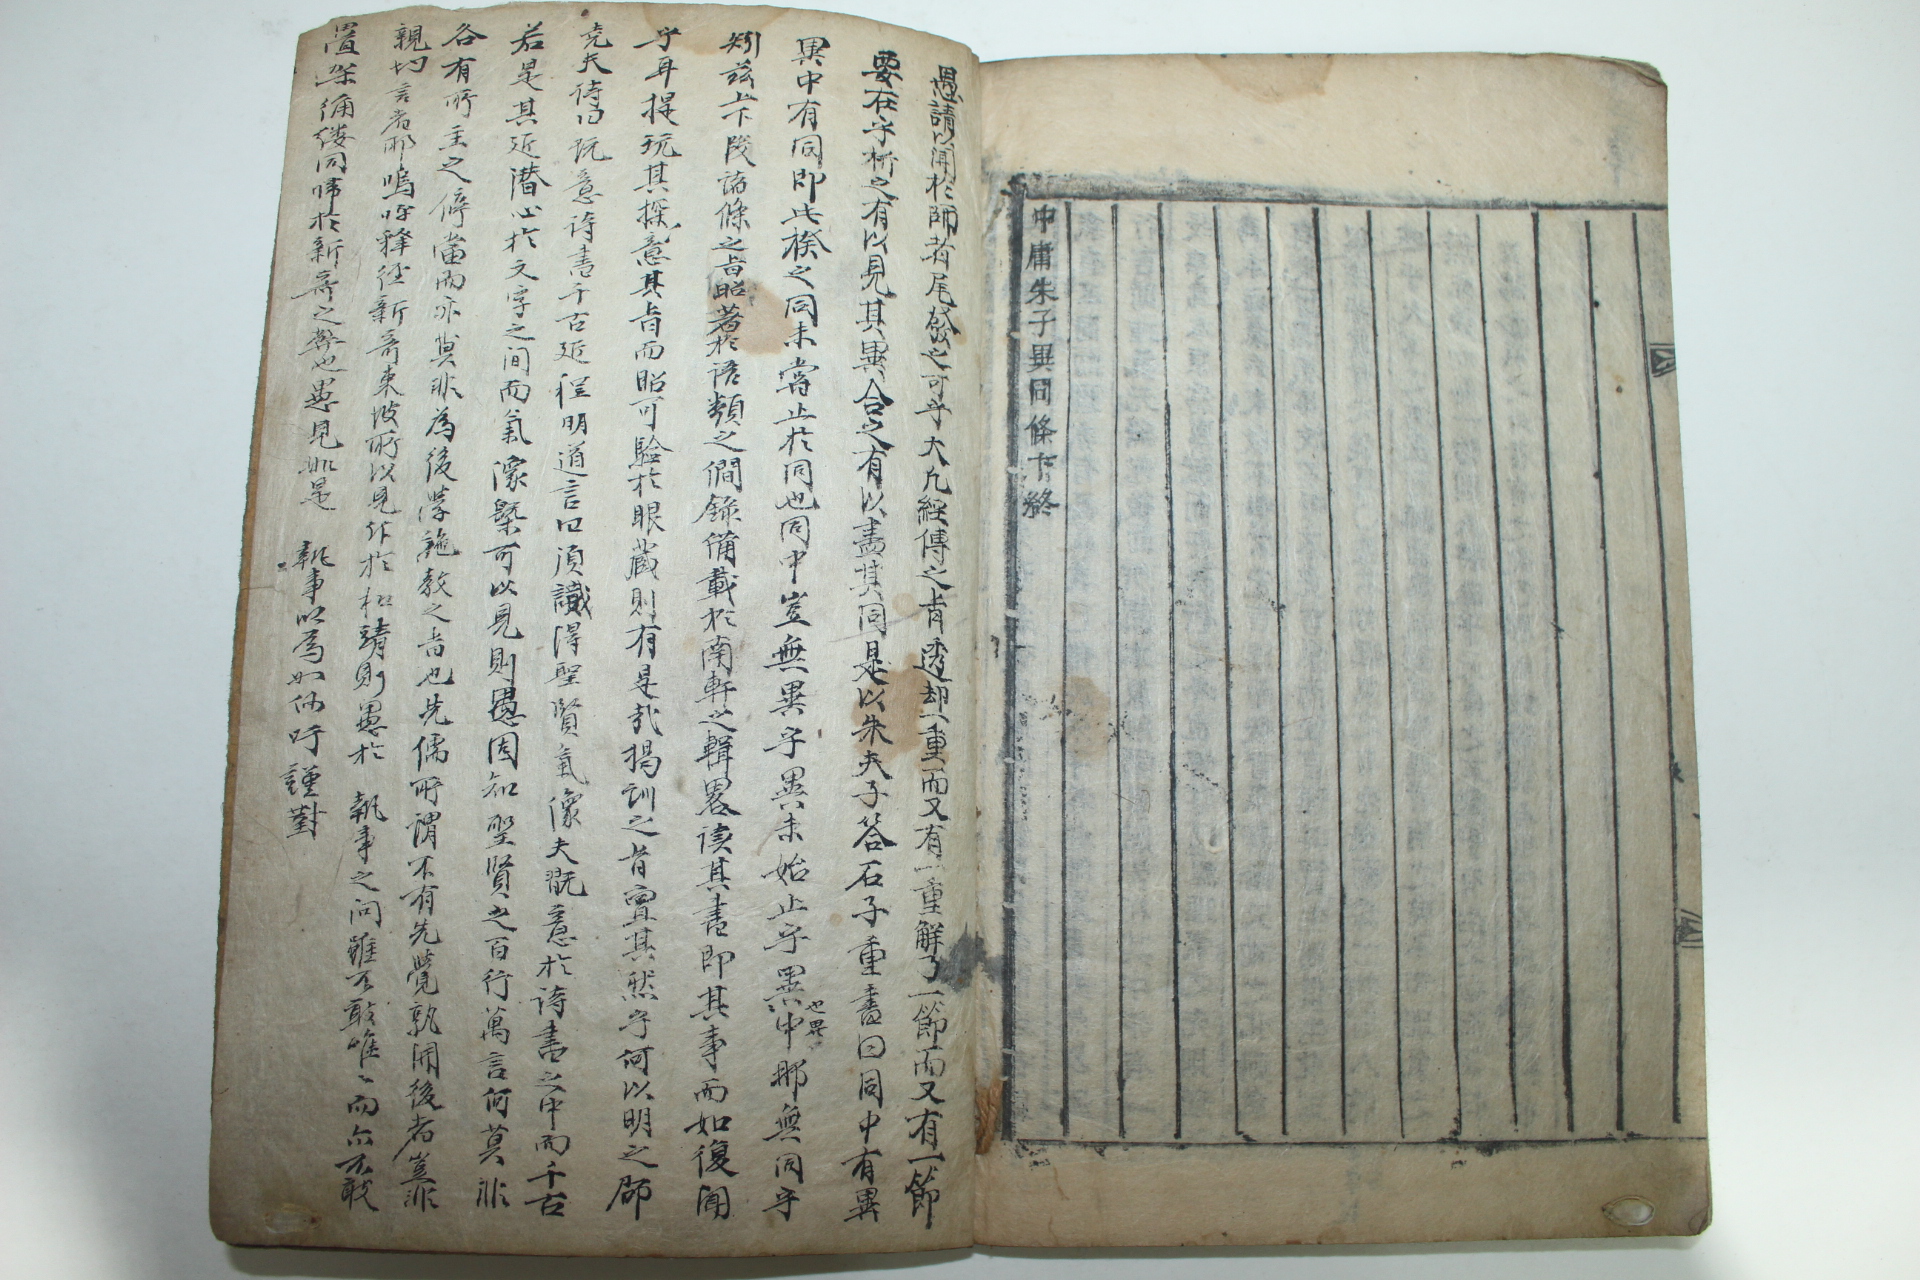 中庸朱子異同條下終
愚請以聞於師者尾發之可乎大凡經傳之旨透却一重而又有一重解了一節而又有一節
要在乎析之有以見其異合之有以盡其同是以朱夫子答石子重書曰同中有異
異中有同即此揆之同未嘗止於同也同中豈無異乎異未始止乎異也異中耶無同乎
矧玆上下段諸條之旨昭著於語類之間錄備載於南軒之輯畧讀其書即其事而如復聞
乎耳提玩其探意其旨而昭可驗於眼藏則有是哉揭訓之旨寔其然乎何以明之邵
堯夫待曰玩意詩書千古近程明道言曰須識得聖賢氣像夫既意於詩書之中而千古
若是其近潛心於文字之間而氣像槩可以見則愚固知聖賢之百行萬言何莫非
各有所主之停當而亦莫非為後學施教之旨也先儒所謂不有先覺孰開後者豈非
親切言者耶嗚呼釋經新奇東坡所以見斥於和靖則愚於 執事之問雖不敢唯唯而亦不敢
置架備縷同歸於新奇之弊也愚見如是 執事以為如何吁謹對